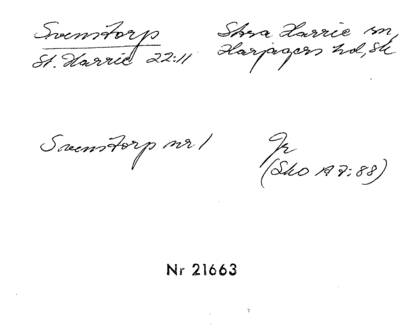 Svenstorp
St. Harrie 22:11
Stora Harrie sn,
Harjagers hd, Sk
Svenstorp nr 1
Jr
(Sko 19 7:88)
Nr 21663